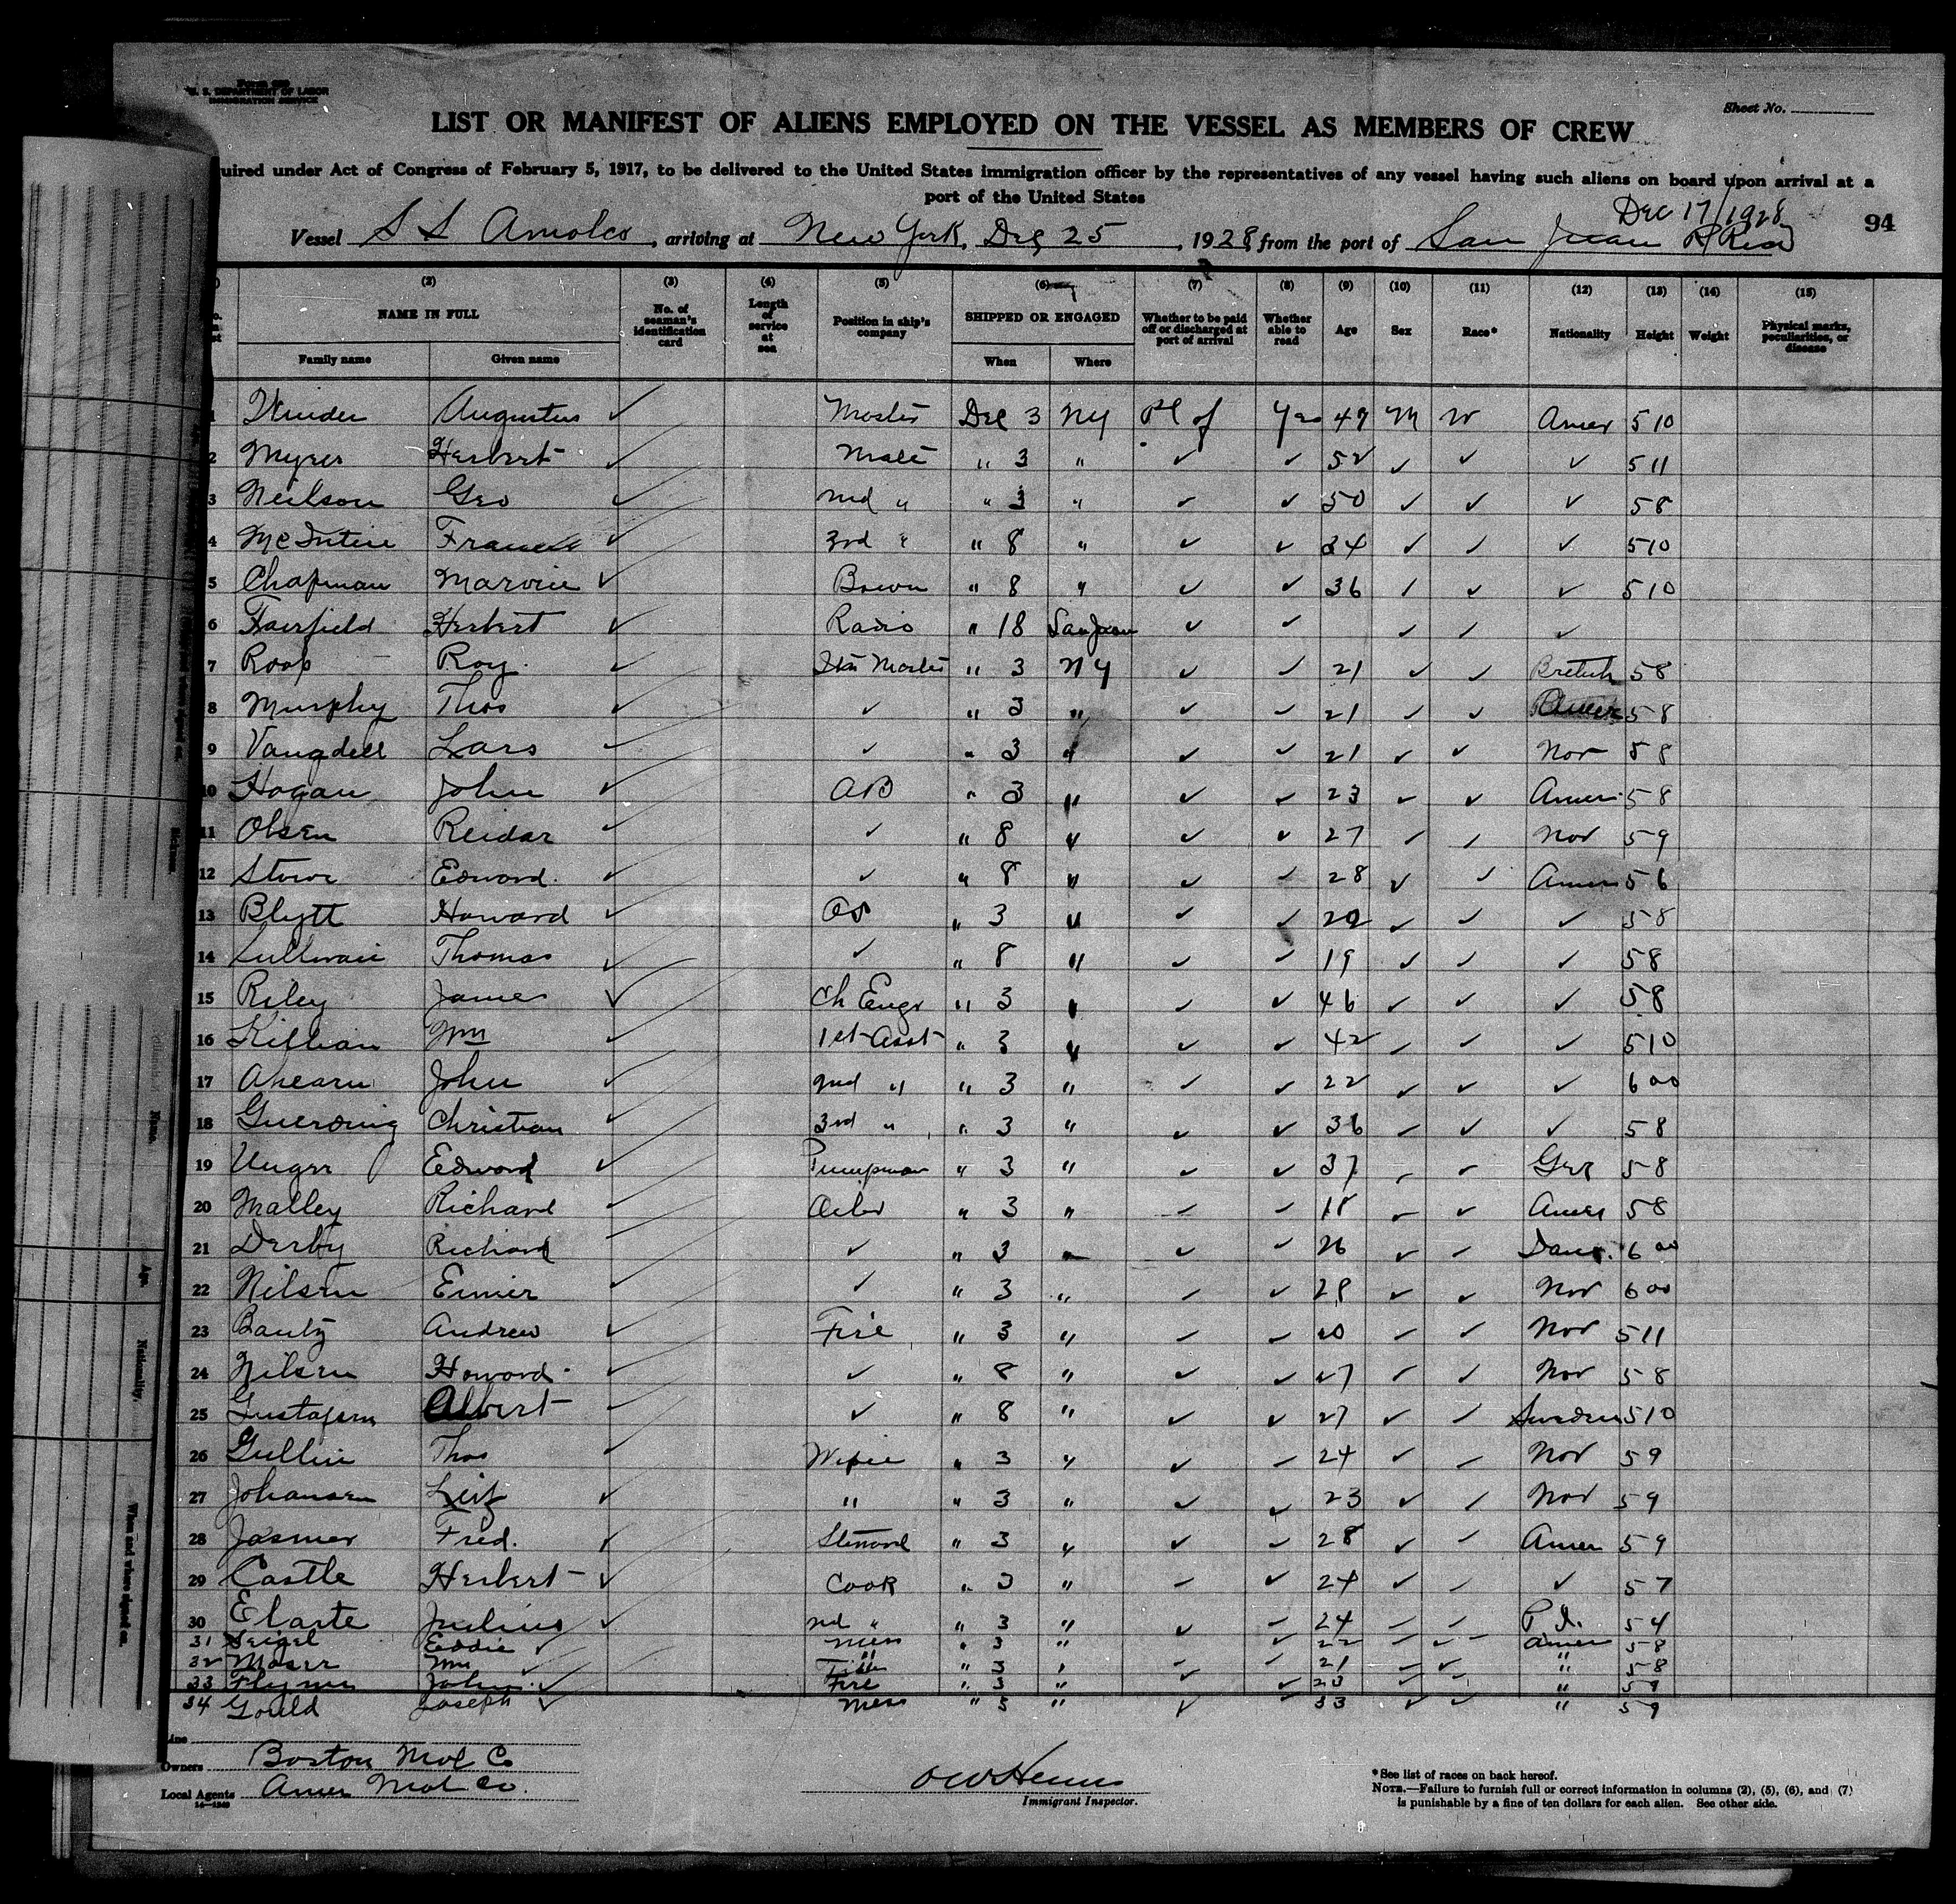 Form 689
U. S. DEPARTMENT OF LABOR
IMMIGRATION SERVICE
Sheet No.
LIST OR MANIFEST OF ALIENS EMPLOYED ON THE VESSEL AS MEMBERS OF CREW
uired under Act of Congress of February 5, 1917, to be delivered to the United States immigration officer by the representatives of any vessel having such aliens on board upon arrival at a
port of the United States
Dec 17/1928
94
Vessel S S Amolco, arriving at New York, Dec 25, 1928 from the port of San Juan P Rico
(2) (3) (4) (5) (6) (7) (8) (9) (10) (11) (12) (13) (14) (15)
NAME IN FULL No. of seaman's identification card Length of service at sea Position in ship's company SHIPPED OR ENGAGED Whether to be paid off or discharged at port of arrival Whether able to read Age Sex Race* Nationality Height Weight Physical marks, peculiarities, or disease
Family name Given name When Where
1 Augustus ✓ Master Dec 3 NY Yes 47 M W Amer 5 10
2 Myres Herbert ✓ Mate " 3 " ✓ ✓ 52 ✓ ✓ ✓ 5 11
3 Neilson Geo ✓ 2nd " " 3 " ✓ ✓ 50 ✓ ✓ ✓ 5 8
4 McIntire Francis ✓ 3rd " " 8 " ✓ ✓ 34 ✓ ✓ ✓ 5 10
5 Chapman Marvin ✓ Bosun " 8 " ✓ ✓ 36 ✓ ✓ ✓ 5 10
6 Fairfield Herbert ✓ Radio " 18 San Juan ✓ ✓ ✓ ✓ ✓
7 Roop Roy ✓ Master " 3 NY ✓ ✓ 21 ✓ ✓ British 5 8
8 Murphy Thos ✓ ✓ " 3 " ✓ ✓ 21 ✓ ✓ Amer 5 8
9 Vangdell Lars ✓ ✓ " 3 " ✓ ✓ 21 ✓ ✓ Nor 5 8
10 Hogan John ✓ AB " 3 " ✓ ✓ 23 ✓ ✓ Amer 5 8
11 Olsen Reidar ✓ ✓ " 8 " ✓ ✓ 27 ✓ ✓ Nor 5 9
12 Stowe Edward ✓ ✓ " 8 " ✓ ✓ 28 ✓ ✓ Amer 5 6
13 Blytt Howard ✓ OS " 3 " ✓ ✓ ✓ ✓ ✓ 5 8
14 Sullivan Thomas ✓ ✓ " 8 " ✓ ✓ 19 ✓ ✓ ✓ 5 8
15 Riley James ✓ Ch Engr " 3 " ✓ ✓ 46 ✓ ✓ ✓ 5 8
16 Killian Wm ✓ 1st Asst " 3 " ✓ ✓ 42 ✓ ✓ ✓ 5 10
17 Ahearn John ✓ 2nd " " 3 " ✓ ✓ 22 ✓ ✓ ✓ 6 00
18 Guerding Christian ✓ 3rd " " 3 " ✓ ✓ 36 ✓ ✓ ✓ 5 8
19 Unger Edward ✓ Pumpman " 3 " ✓ ✓ 37 ✓ ✓ Ger 5 8
20 Malley Richard ✓ Oiler " 3 " ✓ ✓ 18 ✓ ✓ Amer 5 8
21 Derby Richard ✓ ✓ " 3 " ✓ ✓ 26 ✓ ✓ 6 00
22 Nilsen Einer ✓ ✓ " 3 " ✓ ✓ 28 ✓ ✓ Nor 6 00
23 Bautz Andrew ✓ Fire " 3 " ✓ ✓ ✓ ✓ Nor 5 11
24 Nilsen Howard ✓ ✓ " 8 " ✓ ✓ 27 ✓ ✓ Nor 5 8
25 Gustafsen Albert ✓ ✓ " 8 " ✓ ✓ 27 ✓ ✓ Sweden 5 10
26 Gullin Thos ✓ Wiper " 3 " ✓ ✓ 24 ✓ ✓ Nor 5 9
27 Johansen Leif ✓ " " 3 " ✓ ✓ 23 ✓ ✓ Nor 5 9
28 Jasmer Fred. ✓ Steward " 3 " ✓ ✓ 28 ✓ ✓ Amer 5 9
29 Castle Herbert ✓ Cook " 3 " ✓ ✓ 24 ✓ ✓ ✓ 5 7
30 Elarte Julius ✓ 2nd " " 3 " ✓ ✓ 24 ✓ ✓ P. I. 5 4
31 Seigel Eddie ✓ Mess " 3 " ✓ 22 ✓ ✓ Amer 5 8
32 Moser Wm ✓ " 3 " ✓ ✓ 21 ✓ ✓ " 5 8
33 Flynn John ✓ Fire " 3 " ✓ ✓ 23 ✓ ✓ " 5 9
34 Gould Joseph ✓ Mess " 3 " ✓ ✓ 33 ✓ ✓ " 5 9
Line
Owners Boston Mol Co
Local Agents Amer Mol Co.
14—1249
Immigrant Inspector.
*See list of races on back hereof.
NOTE.—Failure to furnish full or correct information in columns (2), (5), (6), and (7)
is punishable by a fine of ten dollars for each alien. See other side.
Name.
Age.
Nationality.
When and where signed on.